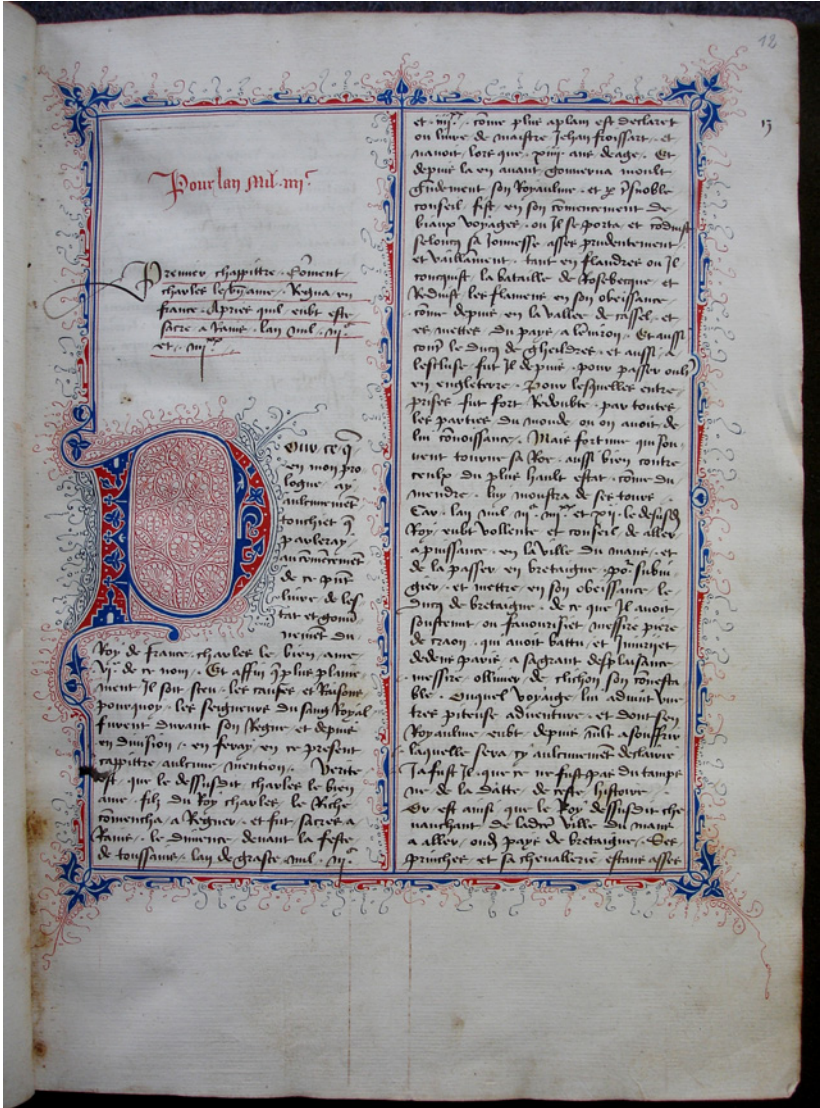 12
13
Pour lan Mil iiijc
Premier chappittre Coment
charles le byename Regna en
france Apres quil eubt este
sacre a Rains lan mil iijc
et iiijxx
Pour ce q
en mon pro
logue ay
aulcunemēt
touchiet q
parleray
au cōmēcemēt
de ce pūt
liure de les
tat et gouū
nement du
Roy de france charles le bien ame
vje de ce nom Et affin q plus plaine
ment Il soit sceu les causes et Raisons
pourquoy les seigneurs du sang Royal
furent durant son Regne et depuis
en diuision en feray en ce present
cappittre aulcune mention Verite
est que le dessusdit charles le bien
ame filz du Roy charles le Riche
cōmencha a Regner et fut sacres a
Rains le dimence deuant la feste
de toussains lan de grasce mil iijc
et iiijxx cōme plus aplain est declaret
ou liure de maistre Jehan froissart et
nauoit lors que xiiij ans deage Et
depuis la en auant gouuerna moult
grādement son Royaulme et p snoble
conseil fist en son cōmencement de
biaux voyages ou Il se porta et cōduist
selonq sa Jonnesse asses prudentement
et vaillament tant en flandres ou Il
concquist la bataille de Rosebecque et
Reduist les flamens en son obeissance
cōme depuis en la vallee de cassel et
es mettes du pays a lenuiron Et aussi
contre le ducq de gheildres et aussi a
lescluse fut Il depuis pour passer oult
en engleterre Pour lesquelles entre
prises fut fort Redoubte par toutes
les parties du monde ou on auoit de
lui cōnoissance Mais fortune qui sou
uent tourne sa Roe aussi bien contre
ceulx du plus hault estat come du
mendre luy moustra de ses tours
Car lan mil iijc iiijxx et xij le desusd
Roy eubt vollente et conseil de aller
a puissance en la ville du mans et
de la passer en bretaigne por subiu
gier et mettre en son obeissance le
ducq de bretaigne de ce que Il auoit
soustenut ou fauouriset messire piere
de craon qui auoit battu et Iniuriet
dedens paris a sa grant desplaisance
messire olliuier de clichon son conesta
ble Ouquel voyaige lui aduint vne
tres piteuse aduenture et dont son
Royaulme eubt depuis mlt a souffrir
laquelle sera cy aulcunement declairie
Ja fust Il que ce ne fust pas du tamps
ne de la datte de ceste histoire
Or est ainsi que le Roy dessusdit che
uauchant de ladcte ville du mans
a aller oud pays de bretaigne Ses
princhez et sa cheuallerie estans asses